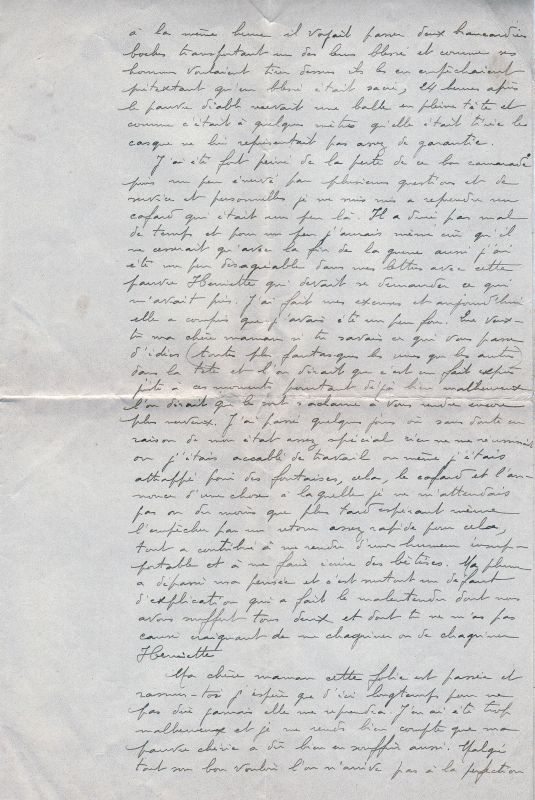 à la même heure il voyait passer deux brancardiers
boches transportant un des leurs blessé et comme ses
hommes voulaient tirer dessus ils les en empêchaient
prétextant qu'un blessé était sacré, 24 heures après
le pauvre diable recevait une balle en pleine tête et
comme c'était à quelques mètres qu'elle était tirée le
casque ne lui représentait pas assez de garantie.
J'ai été fort peiné de la perte de ce bon camarade
puis un peu énervé par plusieurs questions et de
service et personnelles je me suis mis à reprendre un
cafard qui était un peu là. Il a duré pas mal
de temps et pour un peu j'aurais même cru qu'il
ne cesserait qu'avec la fin de la guerre aussi j'ai
été un peu désagréable dans mes lettres avec cette
pauvre Henriette qui devait se demander ce qui
m'avait pris. J'ai fait mes excuses et aujourd'hui
elle a compris que j'avais été un peu fou. Que veux-
tu ma chère maman si tu savais ce qui vous passe
d'idées (toutes plus fantasques les unes que les autres)
dans la tête et l'on dirait que c'est un fait exprès
juste à ces moments pourtant déjà bien malheureux
l'on dirait que le sort s'acharne à vous rendre encore
plus nerveux. J'ai passé quelques jours où sans doute en
raison de mon état assez spécial rien ne me réussissait
ou j'étais accablé de travail ou même j'étais
attrappé pour des foutaises, cela, le cafard et l'an-
nonce d'une chose à laquelle je ne m'attendais
pas ou du moins que plus tard espérant même
l'empêcher par un retour assez rapide pour cela,
tout a contribué à me rendre d'une humeur insup-
portable et à me faire écrire des bêtises. Ma plume
a dépassé ma pensée et c'est surtout un défaut
d'explication qui a fait le malentendu dont nous
avons souffert tous deux et dont tu ne m'as pas
causé craignant de me chagriner ou de chagriner
Henriette
Ma chère maman cette folie est passée et
rassure-toi j'espère que d'ici longtemps pour ne
pas dire jamais elle me reprendra J'en ai été trop
malheureux et je me rends bien compte que ma
pauvre chérie a dû bien en souffrir aussi. Malgré
tout son bon vouloir l'on n'arrive pas à la perfection